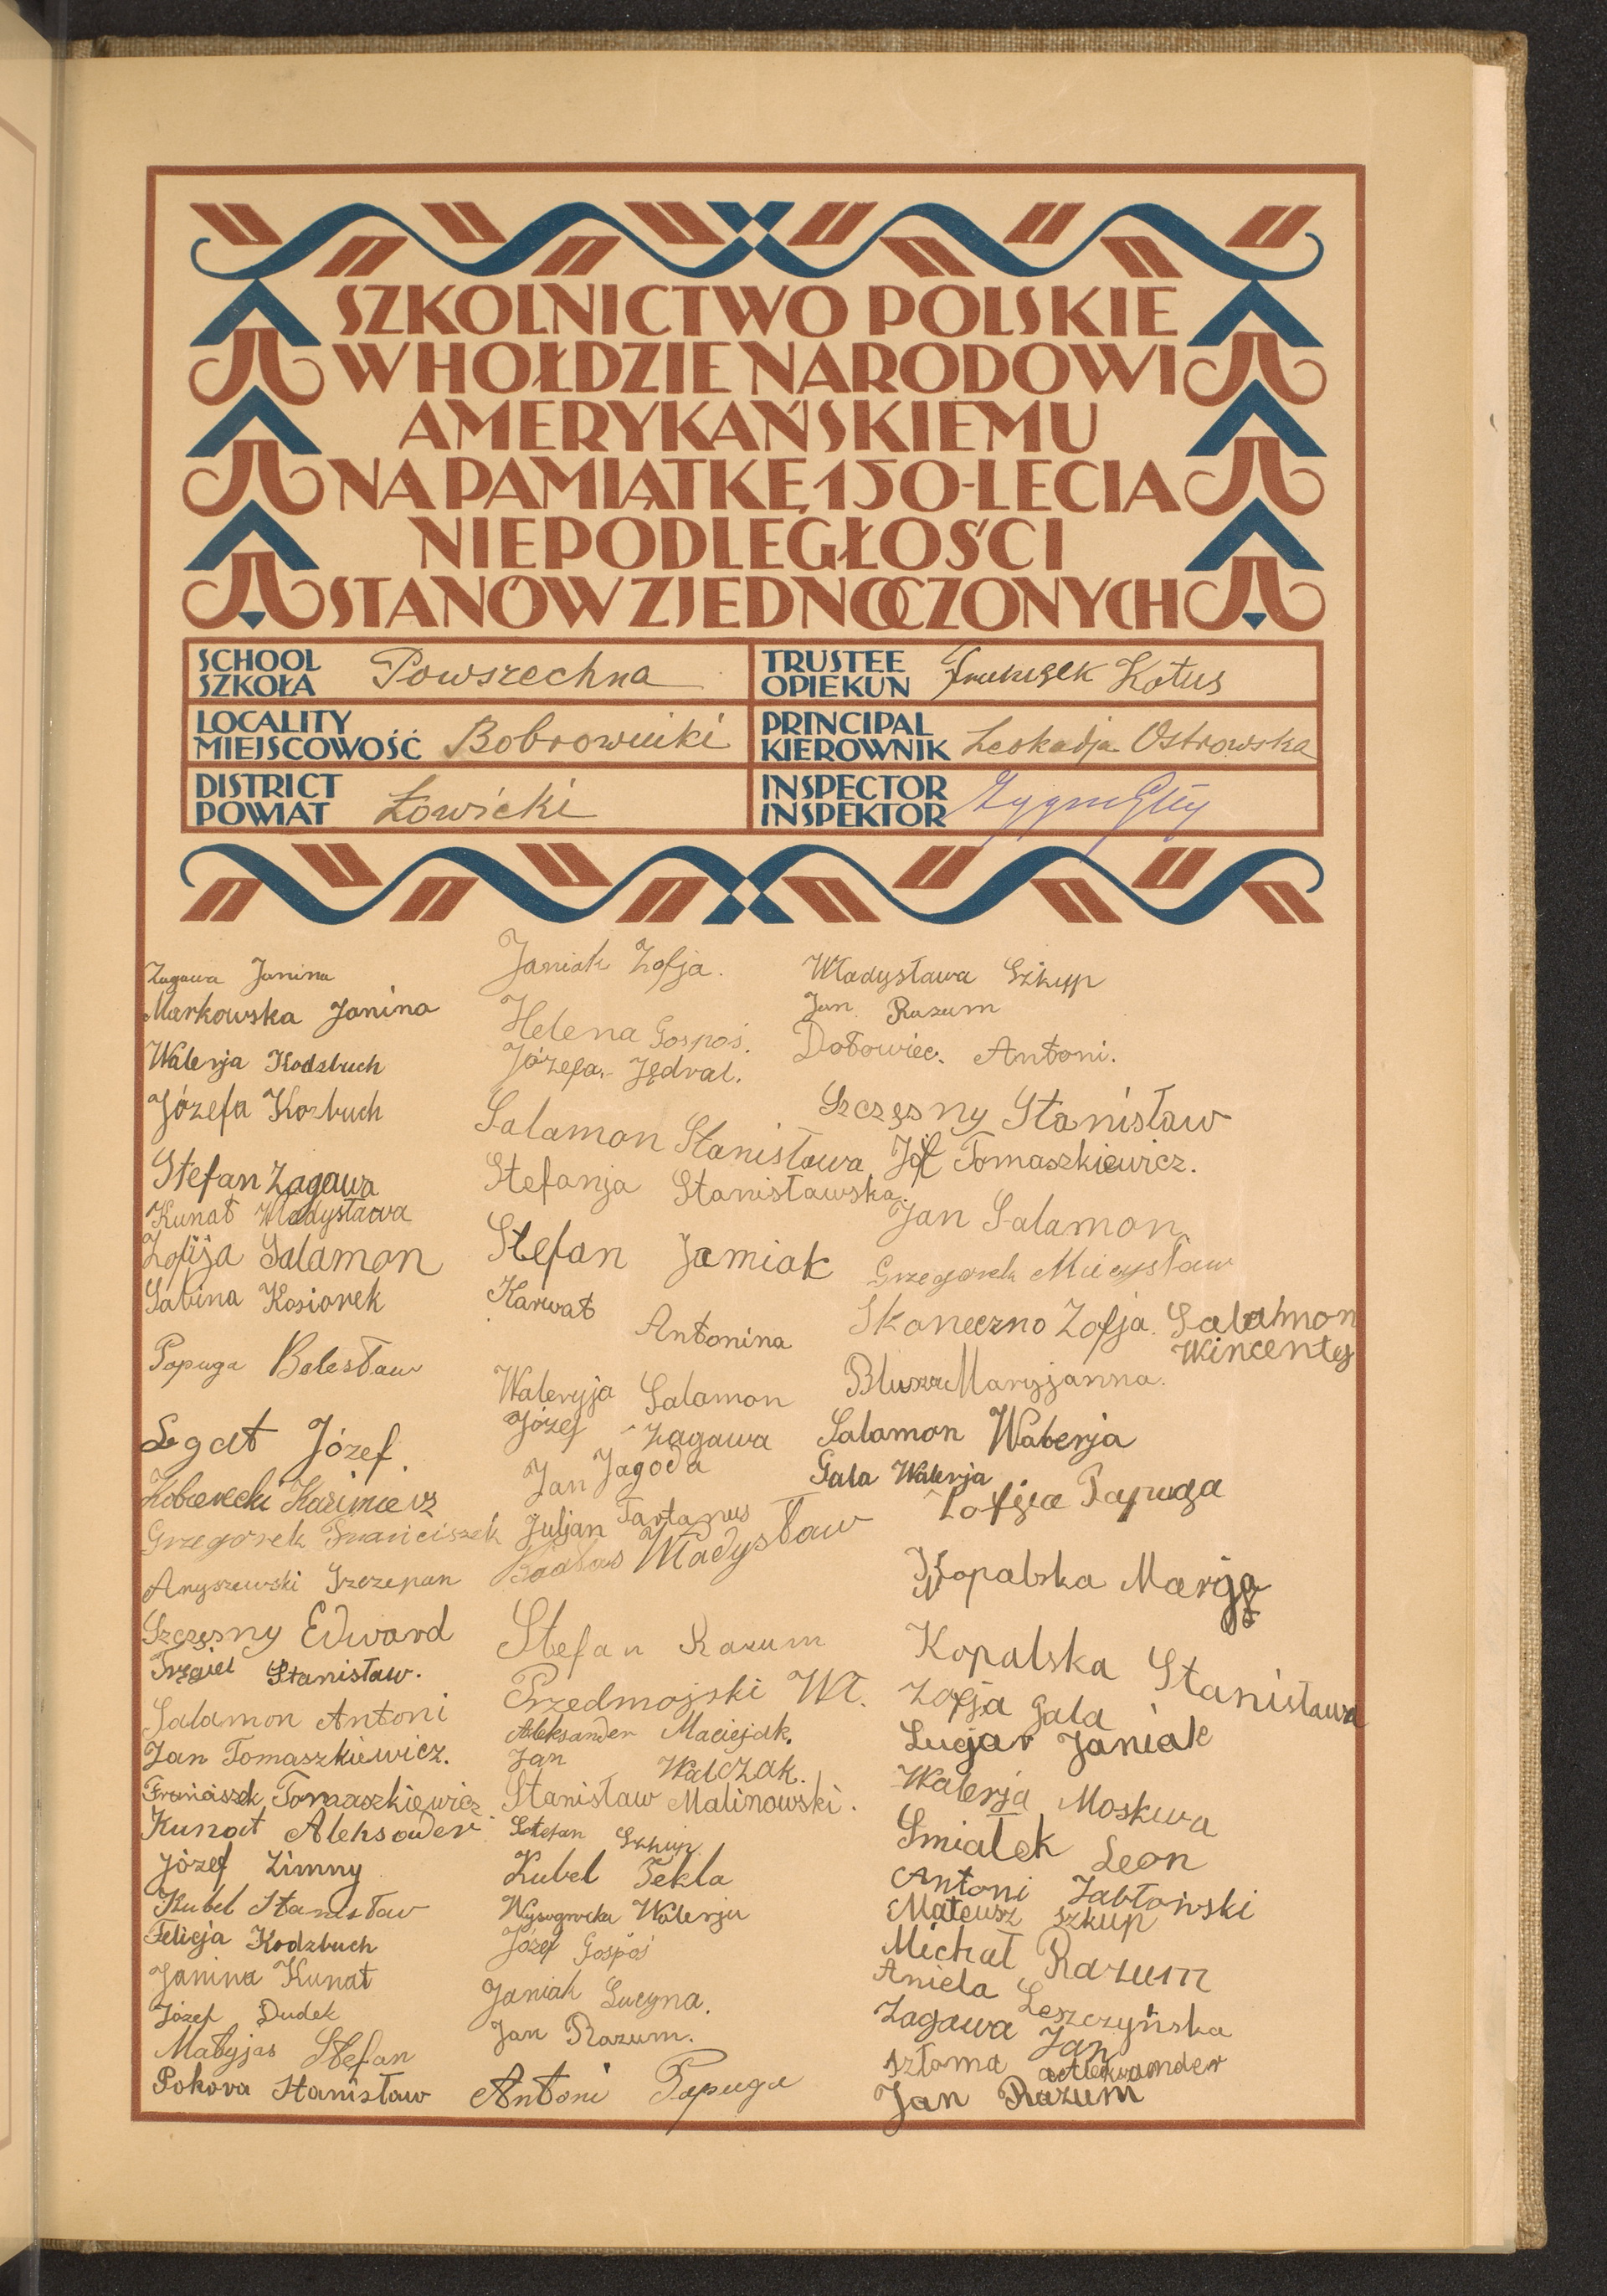 SZKOLNICTWO POLSKIE
W HOŁDZIE NARODOWI
AMERYKAŃSKIEMU
NA PAMIĄTKĘ 150-LECIA
NIEPODLEGŁOŚCI
STANÓW ZJEDNOCZONYCH
SCHOOL
SZKOŁA
Powszechna
TRUSTEE
OPIEKUN
Kotus
LOCALITY
MIEJSCOWOŚĆ
Bobrowniki
PRINCIPAL
KIEROWNIK
Leokadja Ostrowska
DISTRICT
POWIAT
Łowicki
INSPECTOR
INSPEKTOR
Zagawa Janina
Markowska Janina
Walerja Kodzbuch
Józefa Kozbuch
Stefan Zagawa
Kunat Władysława
Zofija Salamon
Sabina Kosiorek
Papuga Bolesław
Legat Józef.
Kazimierz
Grzegorek Franciszek
Anyszewski Szczepan
Szczęsny Edward
Stanisław.
Salamon Antoni
Jan Tomaszkiewicz.
Franciszek Tomaszkiewicz
Kunat Aleksander
Józef Zimny
Kubel Stanisław
Felicja Kodzbuch
Janina Kunat
Józef Dudek
Matyjas Stefan
Pokora Stanisław
Janiak Zofja.
Helena Gospoś.
Józefa Jędral.
Salamon Stanisława
Stefanja Stanisławska.
Stefan Jamiak
Karwat Antonina
Waleryja Salamon
Józef Zagawa
Jan Jagoda
Juljan Tartanus
Władysław
Stefan Razum
Przedmojski Wł.
Aleksander Maciejak.
Jan Walczak.
Stanisław Malinowski.
Stefan Szkup
Kubel Tekla
Wysogrocka Walerja
Józef Gospoś
Janiak Lucyna.
Jan Razum.
Antoni Papuga
Władysława Szkup
Jan Razum
Dołowiec. Antoni.
Szczęsny Stanisław
Tomaszkiewicz.
Jan Salamon
Grzegorek Mieczysław
Skoneczno Zofja. Salamon
Wincenty
Marjanna.
Salamon Walerja
Gala Walerja
Zofija Papuga
Kopalska Marja
Kopalska Stanisława
Zofja Gala
Lucjan Janiak
Walerja Moskwa
Smiałek Leon
Antoni Jabłoński
Mateusz Szkup
Michał Razum
Aniela Leszczyńska
Zagawa Jan
Szłama Aleksander
Jan Razum